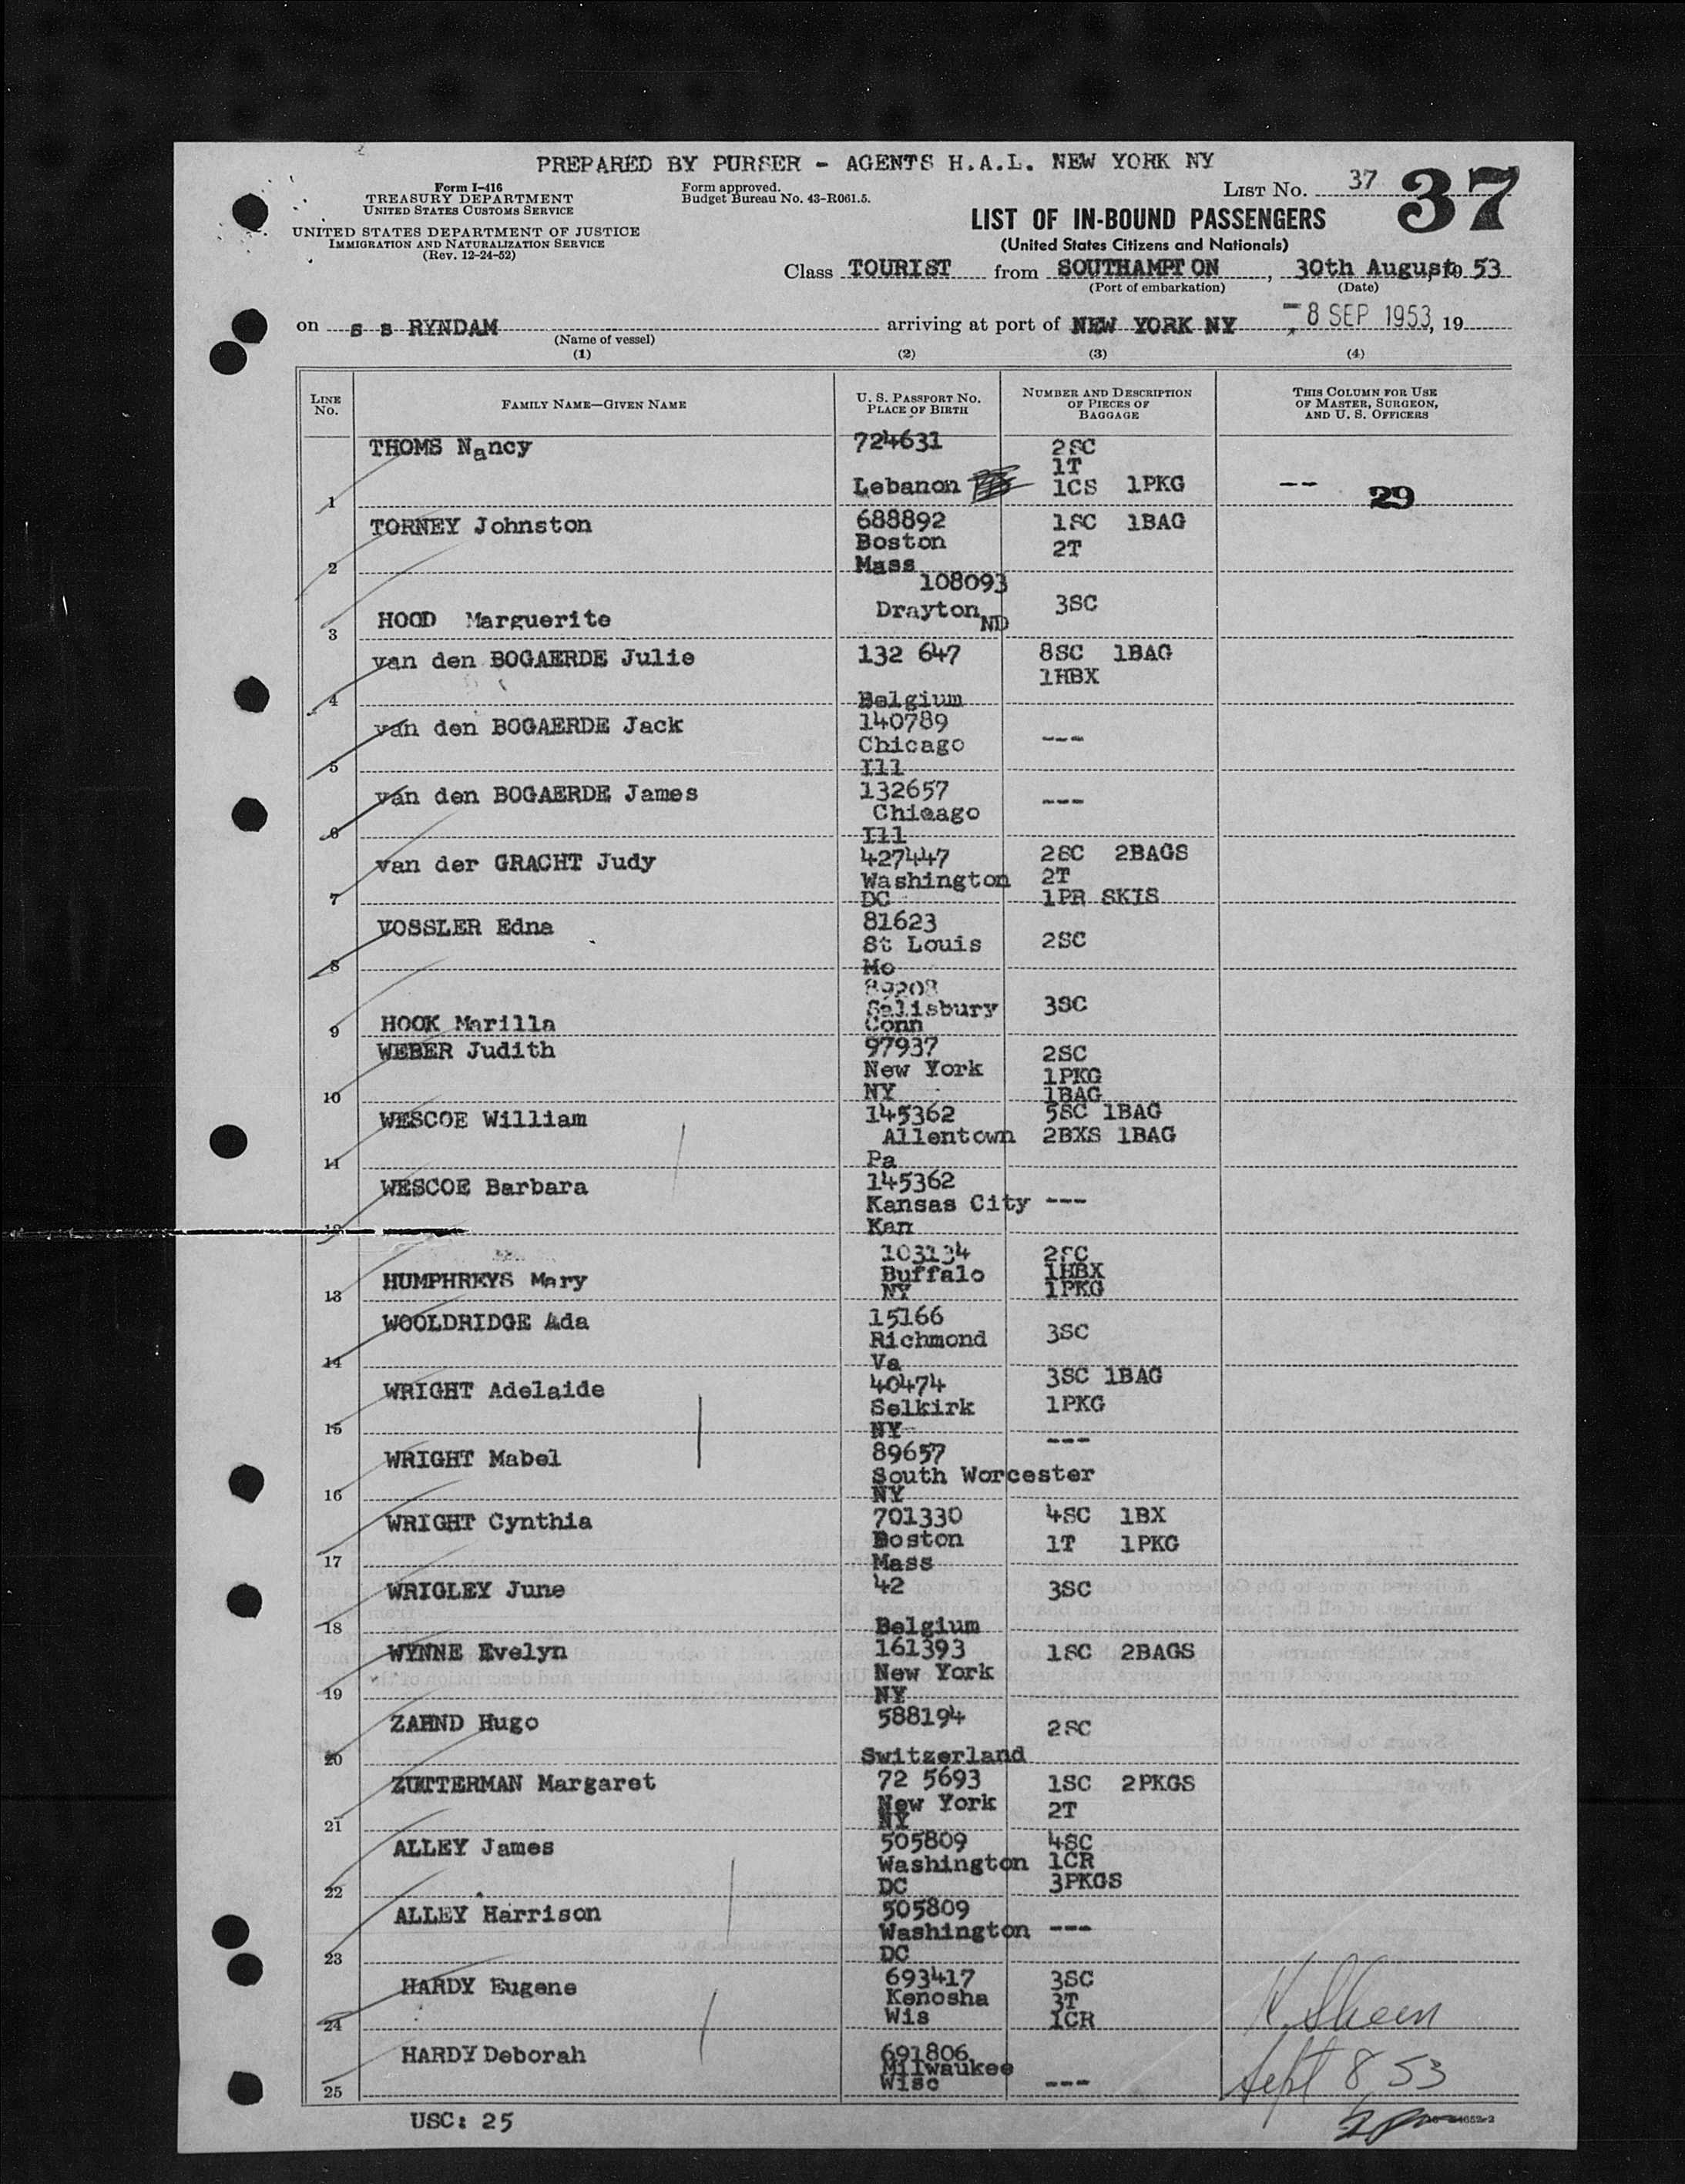 PREPARED BY PURSER - AGENTS H.A.L. NEW YORK NY
Form I-416
TREASURY DEPARTMENT
UNITED STATES CUSTOMS SERVICE
UNITED STATES DEPARTMENT OF JUSTICE
IMMIGRATION AND NATURALIZATION SERVICE
(Rev. 12-24-52)
Form approved.
Budget Bureau No. 43-R061.5.
LIST NO. 37
37
LIST OF IN-BOUND PASSENGERS
(United States Citizens and Nationals)
Class TOURIST from SOUTHAMPTON, 30th August, 19 53
(Port of embarkation) (Date)
on s s RYNDAM arriving at port of NEW YORK NY -8 SEP 1953, 19
(Name of vessel)
(1) (2) (3) (4)
LINE NO. FAMILY NAME—GIVEN NAME U. S. PASSPORT NO. PLACE OF BIRTH NUMBER AND DESCRIPTION OF PIECES OF BAGGAGE THIS COLUMN FOR USE OF MASTER, SURGEON, AND U. S. OFFICERS
THOMS Nancy 724631 2SC
1T
1 Lebanon 1CS 1PKG -- 29
TORNEY Johnston 688892 1SC 1BAG
Boston 2T
2 Mass
108093
Drayton ND 3SC
3 HOOD Marguerite
van den BOGAERDE Julie 132 647 8SC 1BAG
1HBX
4 Belgium
van den BOGAERDE Jack 140789
Chicago ---
5 Ill
van den BOGAERDE James 132657
Chicago ---
6 Ill
van der GRACHT Judy 427447 2SC 2BAGS
Washington 2T
7 DC 1PR SKIS
VOSSLER Edna 81623
St Louis 2SC
8 Mo
89208
Salisbury 3SC
9 HOOK Marilla Conn
WEBER Judith 97937 2SC
New York 1PKG
10 NY 1BAG
WESCOE William 145362 5SC 1BAG
Allentown 2BXS 1BAG
11 Pa
WESCOE Barbara 145362
Kansas City ---
12 Kan
103134 2SC
HUMPHREYS Mary Buffalo 1HBX
13 NY 1PKG
WOOLDRIDGE Ada 15166
Richmond 3SC
14 Va
WRIGHT Adelaide 40474 3SC 1BAG
Selkirk 1PKG
15 NY
WRIGHT Mabel 89657 ---
South Worcester
16 NY
WRIGHT Cynthia 701330 4SC 1BX
Boston 1T 1PKG
17 Mass
WRIGLEY June 42 3SC
18 Belgium
WYNNE Evelyn 161393 1SC 2BAGS
New York
19 NY
ZAHND Hugo 588194 2SC
20 Switzerland
ZUTTERMAN Margaret 72 5693 1SC 2PKGS
New York 2T
21 NY
ALLEY James 505809 4SC
Washington 1CR
22 DC 3PKGS
ALLEY Harrison 505809
Washington ---
23 DC
HARDY Eugene 693417 3SC
Kenosha 3T
24 Wis 1CR
HARDY Deborah 691806
Milwaukee
25 Wisc ---
Sept 8, 53
USC: 25